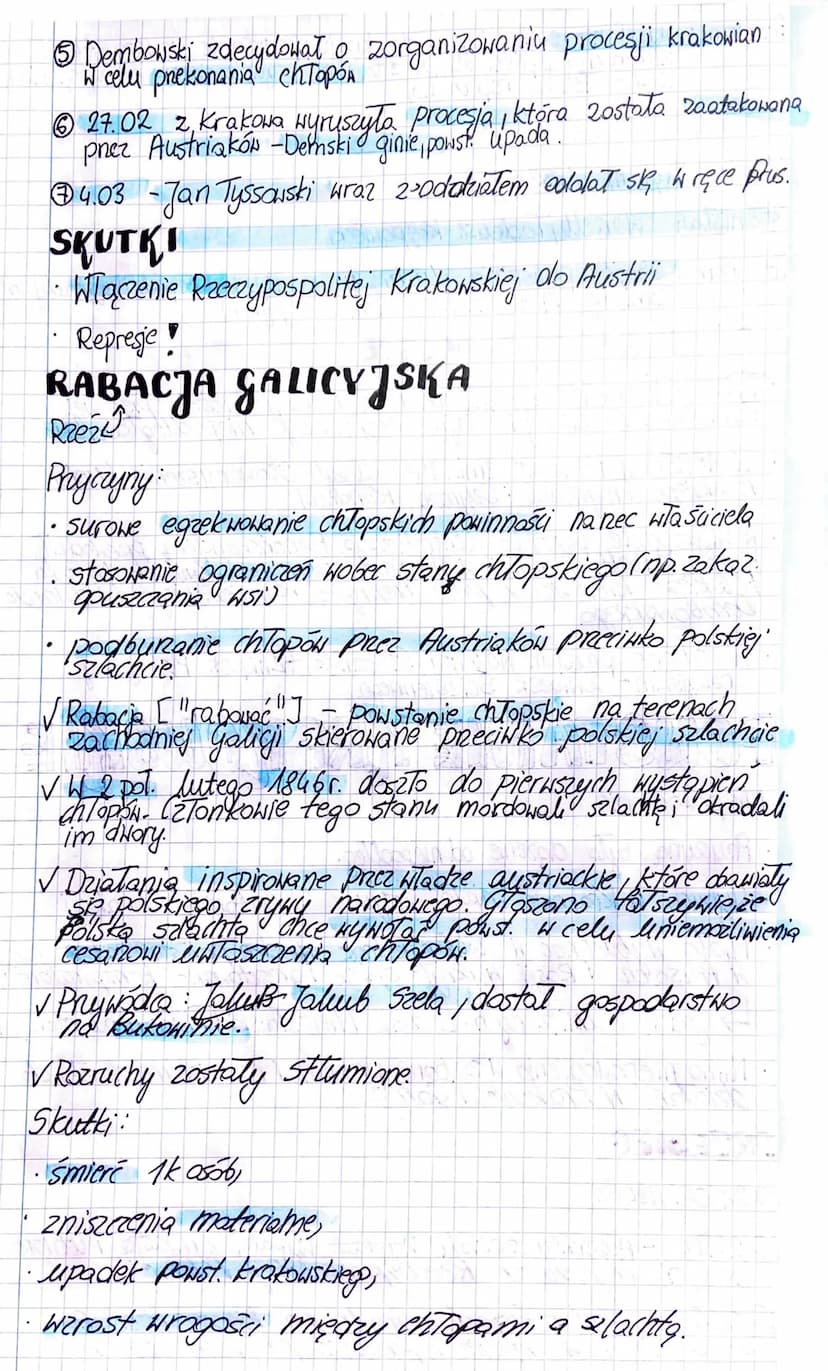 ⑤ Dembowski zdecydował o zorganizowaniu procesji krakowian
w celu przekonania chłopów
⑥ 27.02 z Krakowa wyruszyła procesja, która została zaatakowana
przez Austriaków - Demski ginie, powst. upada.
⑦ 4.03 - Jan Tyssowski wraz z oddziałem oddał się w ręce Prus.
SKUTKI
· Włączenie Rzeczypospolitej Krakowskiej do Austrii
· Represje!
RABACJA GALICYJSKA
Rzeź
Przyczyny:
· surowe egzekwowanie chłopskich powinności na rzec właściciela
· stosowanie ograniczeń wobec stany chłopskiego (np. zakaz
opuszczania wsi)
· podburzanie chłopów przez Austriaków przeciwko polskiej
szlachcie.
√ Rabacja ["rabować"] - powstanie chłopskie na terenach
zachodniej Galicji skierowane przeciwko polskiej szlachcie
√ W 2 poł. lutego 1846r. doszło do pierwszych wystąpień
chłopów. Członkowie tego stanu mordowali szlachtę i okradali
im dwory.
√ Działania inspirowane przez władze austriackie, które obawiały
się polskiego zrywu narodowego. Głoszono fałszywie, że
polska szlachta chce wywołać powst. w celu uniemożliwienia
cesarzowi uwłaszczenia chłopów.
√ Przywódca: Jakub Jakub Szela, dostał gospodarstwo
na Bukowinie.
√ Rozruchy zostały stłumione.
Skutki:
· śmierć 1k osób,
· zniszczenia materialne,
· upadek powst. krakowskiego,
· wzrost wrogości między chłopami a szlachtą.